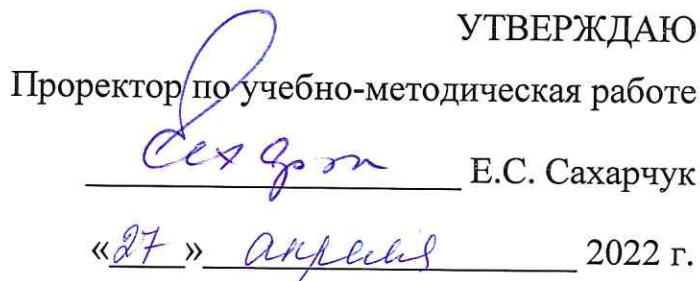 УТВЕРЖДАЮ
Проректор по учебно-методическая работе
Е.С. Сахарчук
«27» апреля 2022 г.